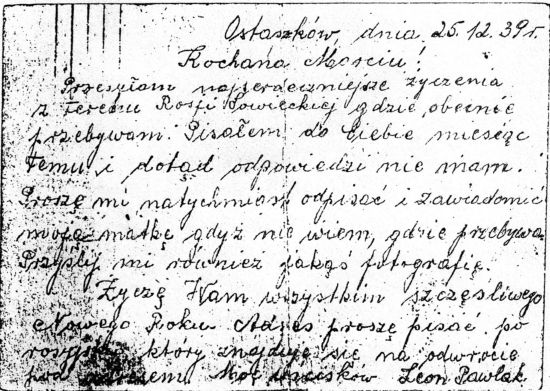 Ostaszków, dnia 25.12.39 r.
Kochana Marciu!
Przesyłam najserdeczniejsze życzenia
z terenu Rosji Sowieckiej gdzie obecnie
przebywam. Pisałem do Ciebie miesiąc
temu i dotąd odpowiedzi nie mam.
Proszę mi natychmiast odpisać i zawiadomić
moją matkę gdyż nie wiem, gdzie przebywa.
Przyślij mi również jakąś fotografię.
Życzę Wam wszystkim szczęśliwego
Nowego Roku. Adres proszę pisać po
który znajduje się na odwrocie
Leon Pawlak